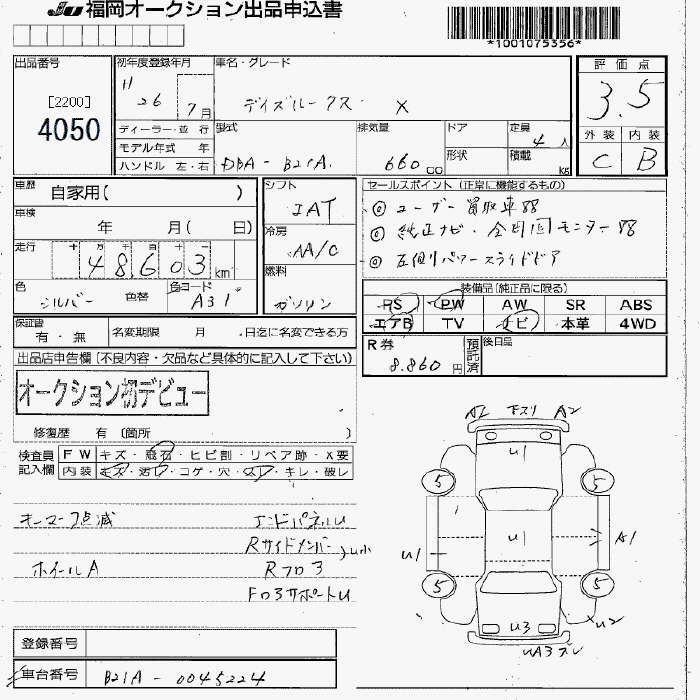 JU 福岡オークション出品申込書
*1001075356*
出品番号
[2200]
4050
初年度登録年月
H 26 7月
車名・グレード
デイズルークス X
評価点
3.5
外装 内装
C B
ディーラー・並行
モデル年式 年
ハンドル 左・右
型式
DBA-B21A
排気量
660 cc
ドア
形状
定員
4人
積載
kg
車歴
自家用( )
車検
年 月( 日)
走行
十 万 千 百 十 一
48603km
色
シルバー
色替
色コード
A31
シフト
IAT
冷房
AA/C
燃料
ガソリン
セールスポイント (正常に機能するもの)
◎ ユーザー買取車!!
◎ 純正ナビ・全周囲モニター!!
◎ 左側パワースライドドア
装備品(純正品に限る)
PS PW AW SR ABS
エアB TV ナビ 本革 4WD
保証書
有・無
名変期限 月 日迄に名変できる方
R券
8.860円
預託済
後日品
出品店申告欄 (不良内容・欠品など具体的に記入して下さい)
オークション初デビュー
修復歴 有 〔箇所 〕
検査員記入欄
FW キズ・飛石・ヒビ割・リペア跡・X要
内装 キズ・汚れ・コゲ・穴・スレ・キレ・破レ
キーマーク点滅
ホイールA
エンドパネルU
Rサイドメンバー
U小
Rフロ3
Fロ3サポートU
A2 下スリ A2
U1
5 5
U1
U1
A1
5 5
U3
U2
UA3ズレ
登録番号
車台番号
B21A-0045224